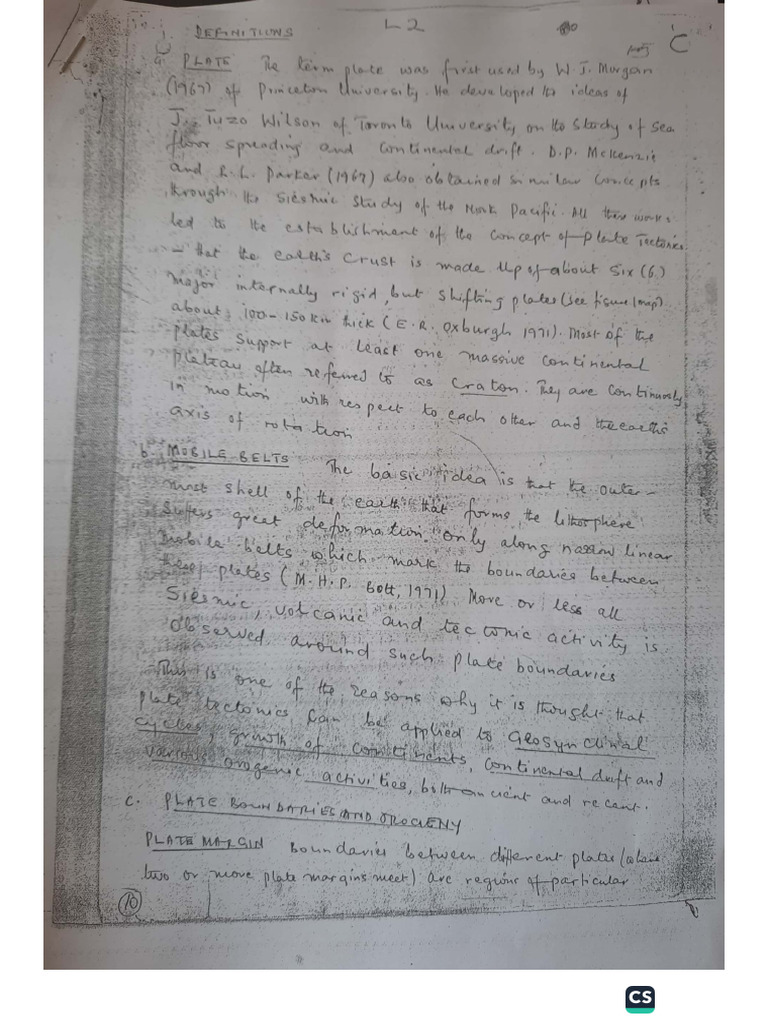 L2
DEFINITIONS
C
a. PLATE The term plate was first used by W J. Morgan
(1967) of Princeton University. He developed the ideas of
J. Tuzo Wilson of Toronto University on the study of sea
floor spreading and continental drift. D.P. McKenzie
and R.L. Parker (1967) also obtained similar concepts
through the siesmic study of the North Pacific. All these works
led to the establishment of the concept of plate Tectonics
- that the earth's crust is made up of about six (6)
major internally rigid, but shifting plates (see figure/map)
about 100-150km thick (E.R. Oxburgh 1971). Most of the
plates support at least one massive continental
plateau often referred to as Craton. They are continuously
in motion with respect to each other and the earth's
axis of rotation
b. MOBILE BELTS The basic idea is that the outer-
most shell of the earth that forms the lithosphere
suffers great deformation only along narrow linear
mobile belts which mark the boundaries between
these plates (M.H.P. Bott, 1971) More or less all
Siesmic, volcanic and tectonic activity is
observed around such plate boundaries
This is one of the reasons why it is thought that
plate tectonics can be applied to Geosynclinal
cycles, growth of continents, continental drift and
various orogenic activities, both ancient and recent.
c. PLATE BOUNDARIES AND OROGENY
PLATE MARGIN Boundaries between different plates (where
two or more plate margins meet) are regions of particular
10
CS